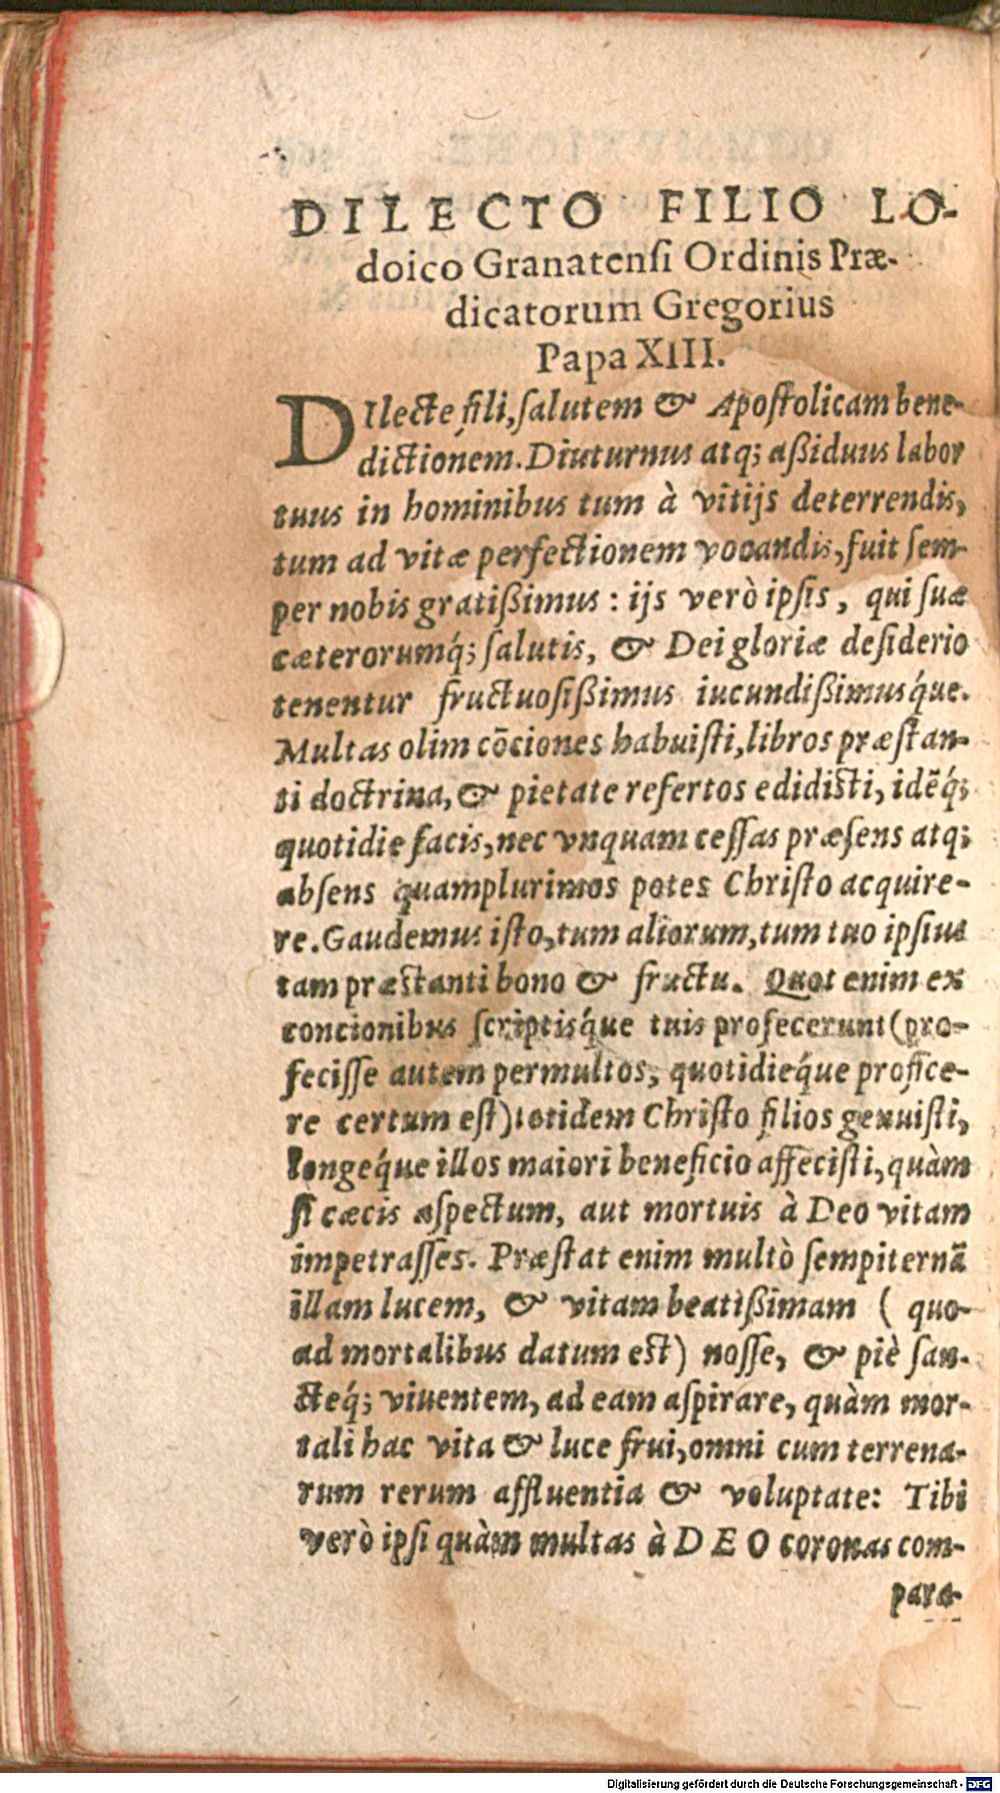 DILECTO FILIO LO-
doico Granatensi Ordinis Præ-
dicatorum Gregorius
Papa XIII.
DIlecte fili, salutem & Apostolicam bene-
dictionem. Diuturnus atq; aßiduus labor
tuus in hominibus tum à vitijs deterrendis,
tum ad vitæ perfectionem vocandis, fuit sem-
per nobis gratißimus: ijs verò ipsis, qui suæ
cæterorumq́; salutis, & Dei gloriæ desiderio
tenentur fructuosißimus iucundißimusq́ue.
Multas olim cōciones habuisti, libros præstan-
ti doctrina, & pietate refertos edidisti, idēq́;
quotidie facis, nec vnquam cessas præsens atq;
absens quamplurimos potes Christo acquire-
re. Gaudemus isto, tum aliorum, tum tuo ipsius
tam præstanti bono & fructu. Quot enim ex
concionibus scriptisq́ue tuis profecerunt (pro-
fecisse autem permultos, quotidieq́ue profice-
re certum est) totidem Christo filios genuisti,
longeq́ue illos maiori beneficio affecisti, quàm
si cæcis aspectum, aut mortuis à Deo vitam
impetrasses. Præstat enim multò sempiternā
illam lucem, & vitam beatißimam ( quo-
ad mortalibus datum est) nosse, & piè san-
cteq́; viuentem, ad eam aspirare, quàm mor-
tali hac vita & luce frui, omni cum terrena-
rum rerum affluentia & voluptate: Tibi
verò ipsi quàm multas à DEO coronas com-
para-
Digitalisierung gefördert durch die Deutsche Forschungsgemeinschaft - DFG